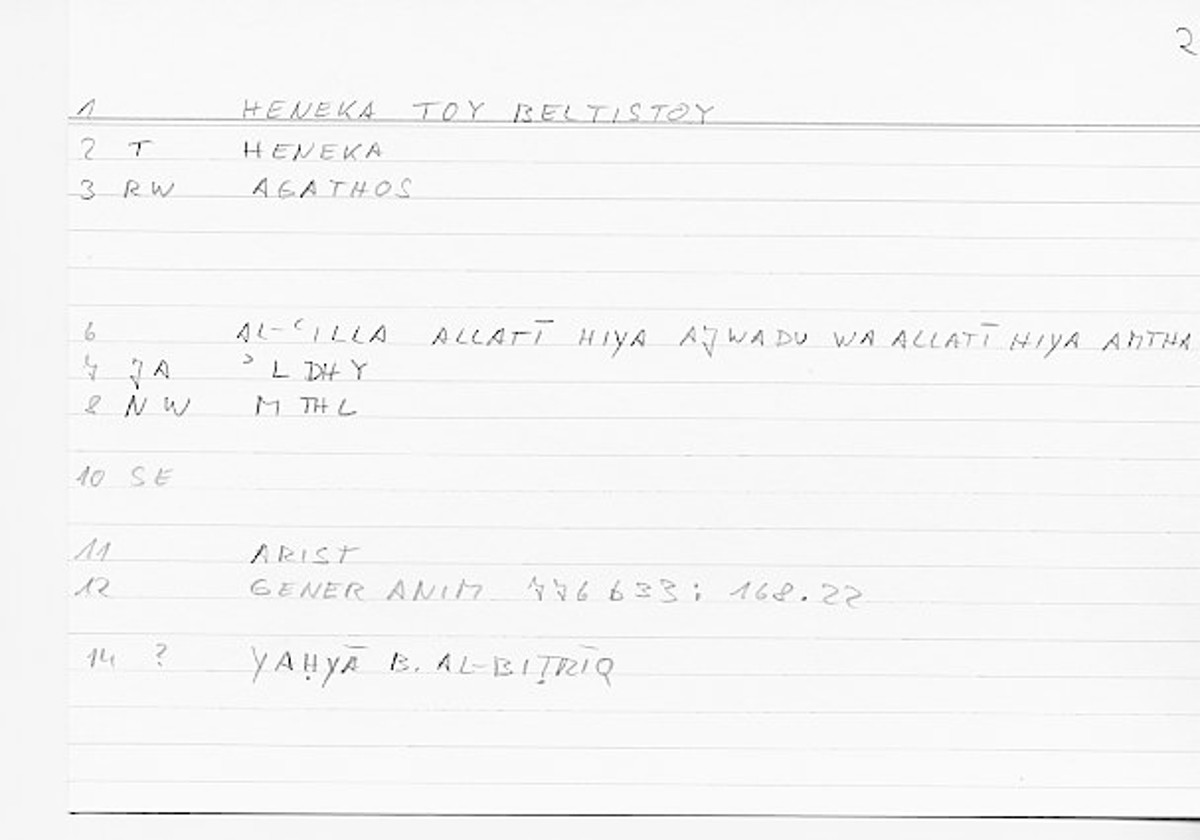 2
1 HENEKA TOY BELTISTOY
2 T HENEKA
3 RW AGATHOS
6 AL-ʿILLA ALLATĪ HIYA AJWADU WA ALLATĪ HIYA AMTHA
7 JA ʾLDHY
8 NW MTHL
10 SE
11 ARIST
12 GENER ANIM 776 b33; 168.22
14 ? YAḤYĀ B. AL-BIṬRĪQ